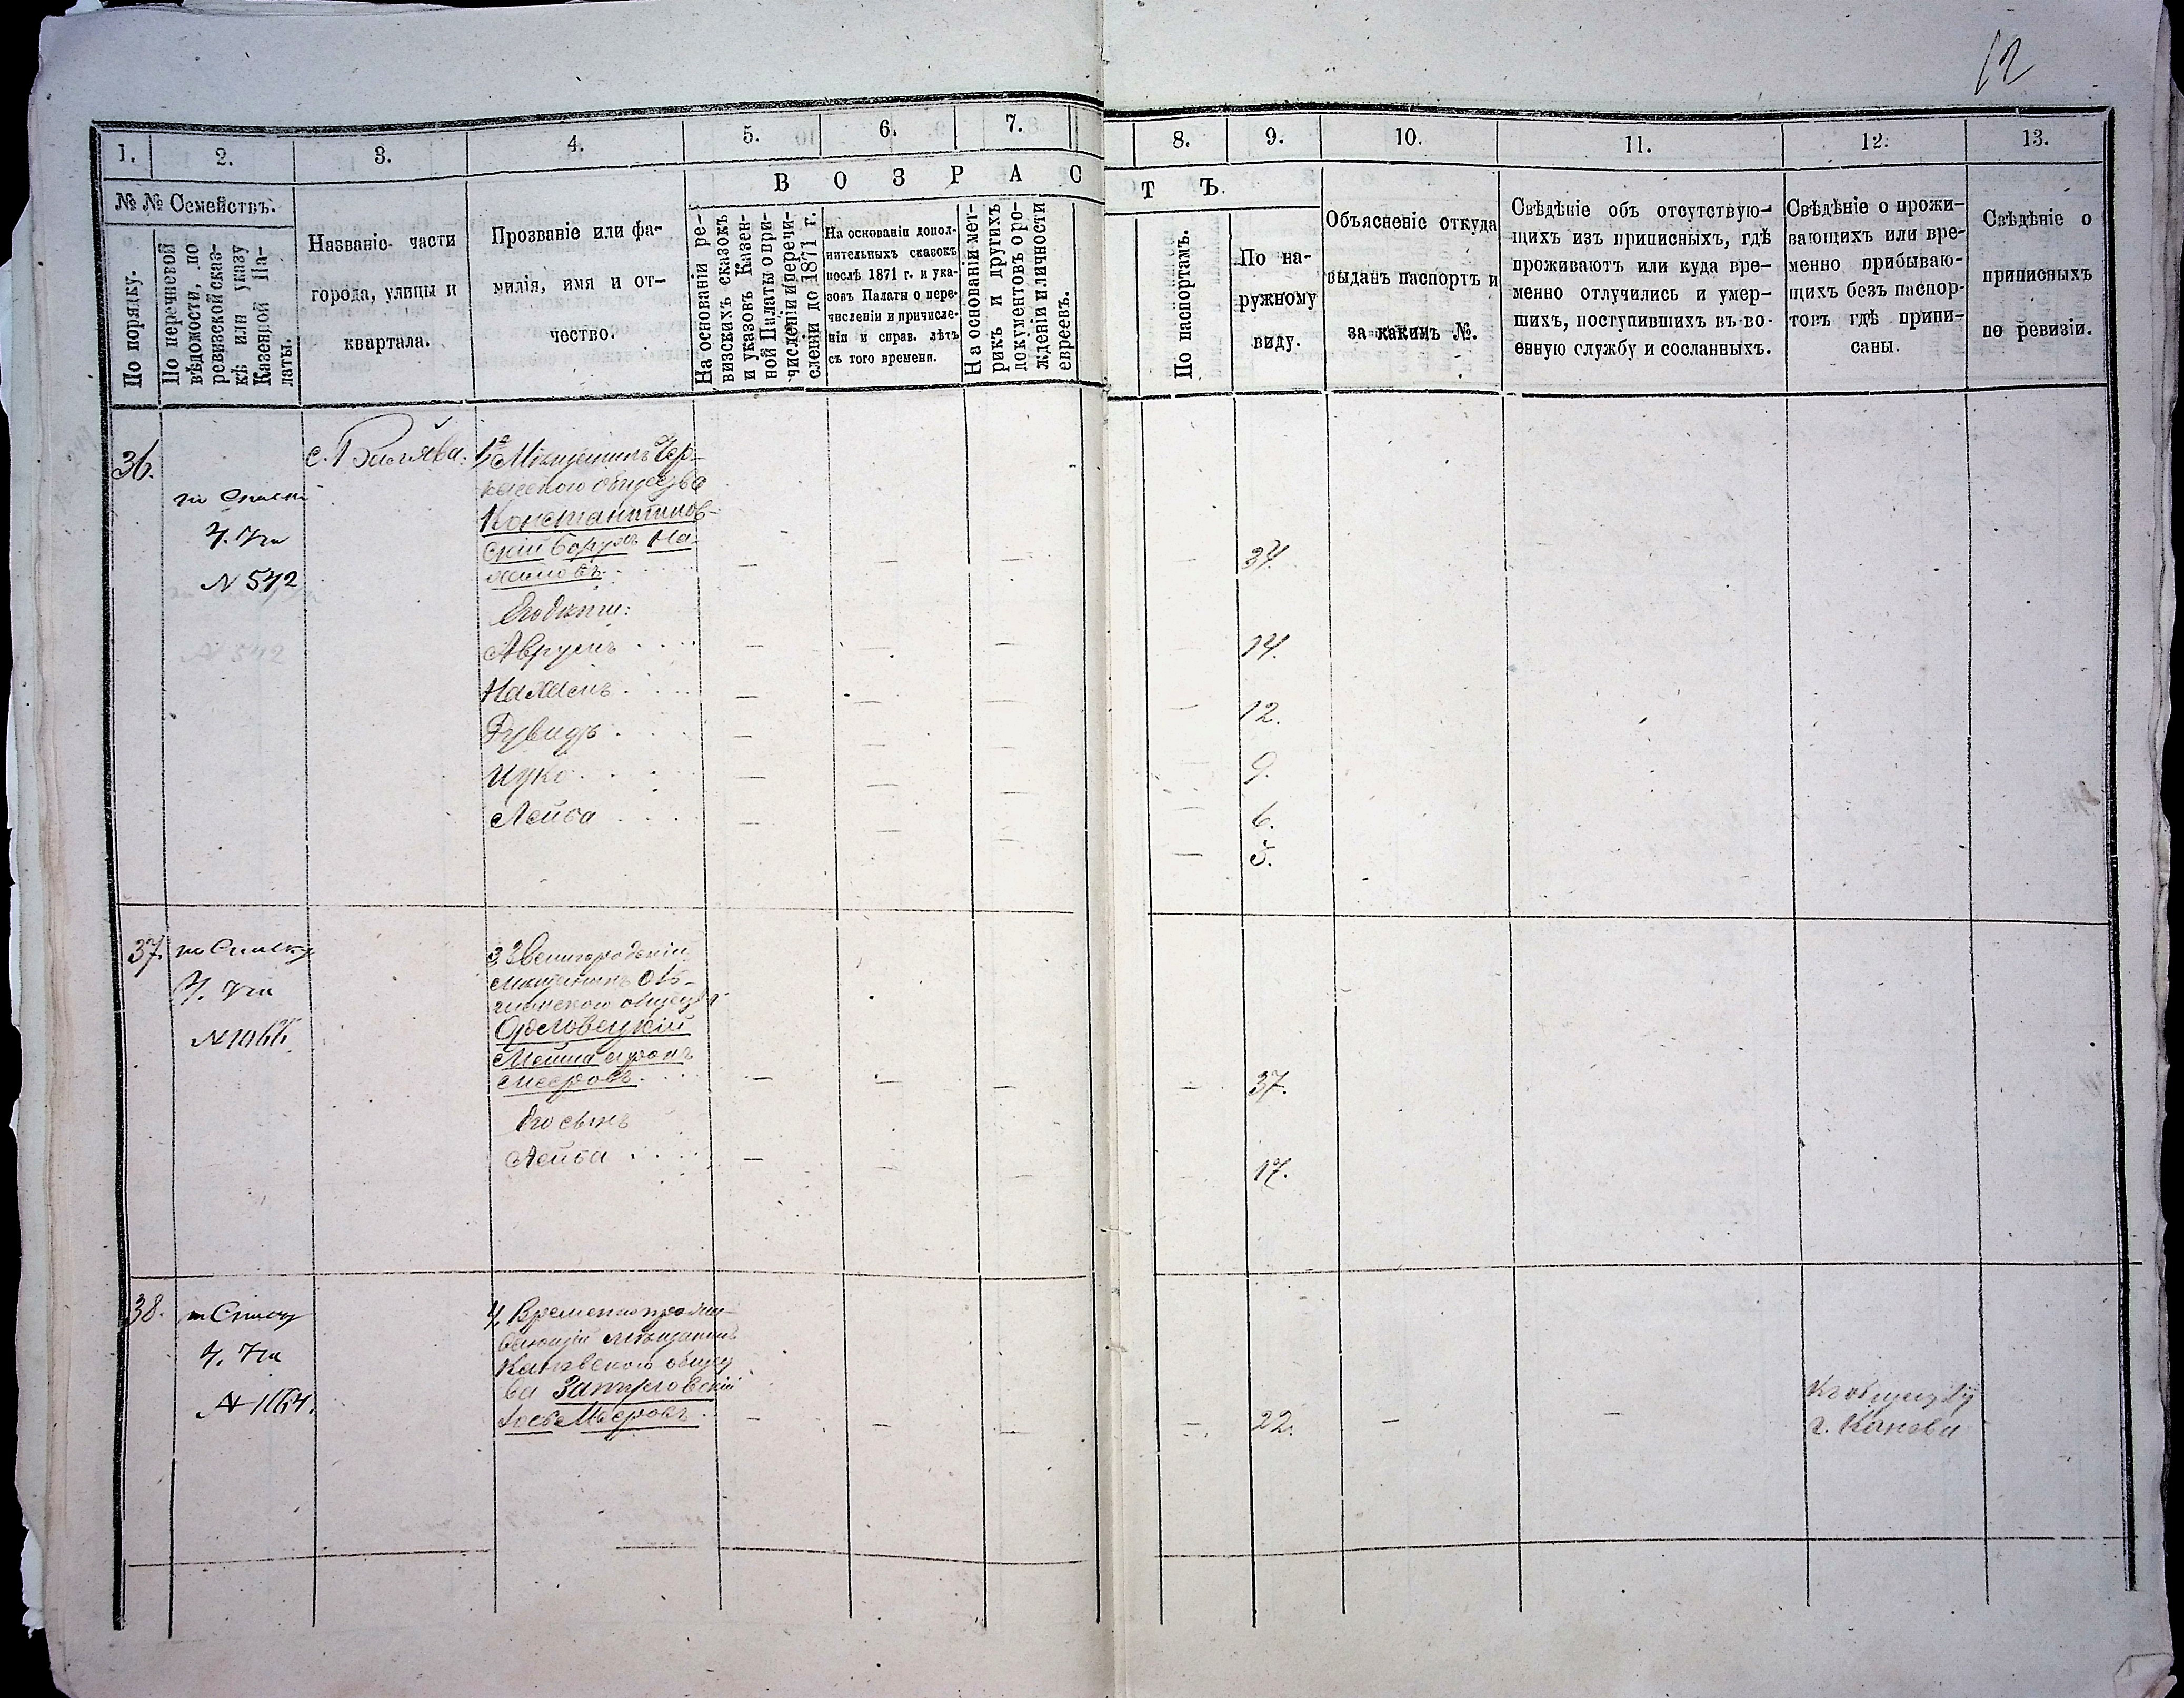 12
1. 2. 3. 4. 5. 6. 7. 8. 9. 10. 11. 12. 13.
№ № Семействъ.
По порядку.
По перечневой
вѣдомости, по
ревизской сказ-
кѣ или указу
Казенной Па-
латы.
Названіе части
города, улицы и
квартала.
Прозваніе или фа-
милія, имя и от-
чество.
В О З Р А С Т Ъ.
На основаніи ре-
визскихъ сказокъ
и указовъ Казен-
ной Палаты о при-
численіи и перечи-
сленіи до 1871 г.
На основаніи допол-
нительныхъ сказокъ
послѣ 1871 г. и ука-
зовъ Палаты о пере-
численіи и причисле-
ніи и справ. лѣтъ
съ того времени.
На основаніи мет-
рикъ и другихъ
документовъ о ро-
жденіи и личности
евреевъ.
По паспортамъ.
По на-
ружному
виду.
Объясненіе откуда
выданъ паспортъ и
за какимъ №.
Свѣдѣніе объ отсутствую-
щихъ изъ приписныхъ, гдѣ
проживаютъ или куда вре-
менно отлучились и умер-
шихъ, поступившихъ въ во-
енную службу и сосланныхъ.
Свѣдѣніе о прожи-
вающихъ или вре-
менно прибываю-
щихъ безъ паспор-
товъ гдѣ припи-
саны.
Свѣдѣніе о
приписныхъ
по ревизіи.
36.
N 542
с.
Мѣщанинъ Чер-
каскаго общества
Константинов-
скій Борухъ На-
химовъ 34.
Его дѣти:
Аврумъ 14.
Нахимъ 12.
Дувидъ 9.
Ицко 6.
Лейба 5.
37.
по Списку
N 1066
3, Звенигородскій
мѣщанинъ Оль-
шанскаго общества
Орловецкій
Мошка
Мееровъ 37.
Его сынъ
Лейба 17.
38.
N 1064.
4, Временно прожи-
вающій мѣщанинъ
Каневского общест
ва
Мееровъ 22.
Къ обществу
г. Канева